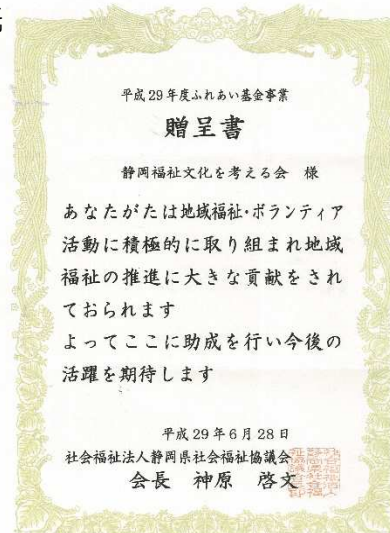 平成29年度ふれあい基金事業
贈呈書
静岡福祉文化を考える会 様
あなたがたは地域福祉・ボランティア
活動に積極的に取り組まれ地域
福祉の推進に大きな貢献をされ
ておられます
よってここに助成を行い今後の
活躍を期待します
平成29年6月28日
社会福祉法人静岡県社会福祉協議会
会長 神原 啓文